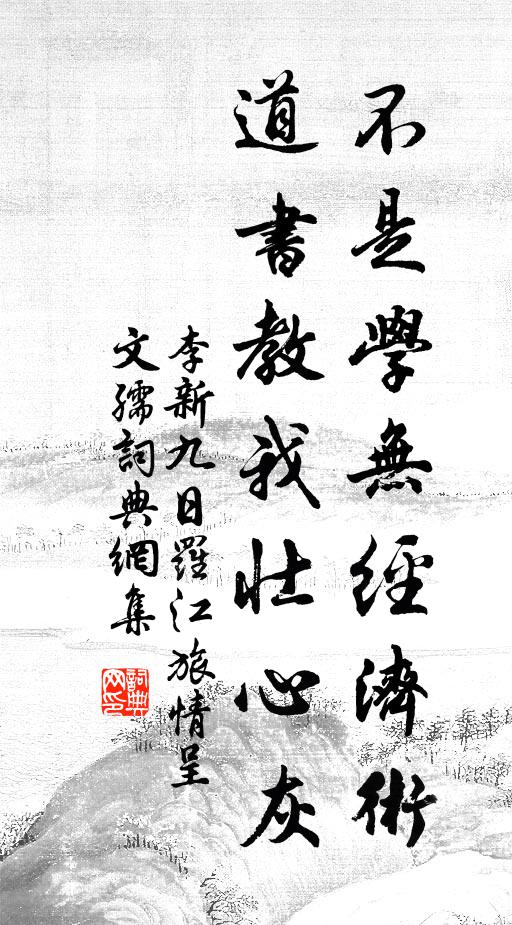 不是學無經濟術
道書教我壯心灰
李新九日羅江旅情呈
文孺詞典網集
詞典網印